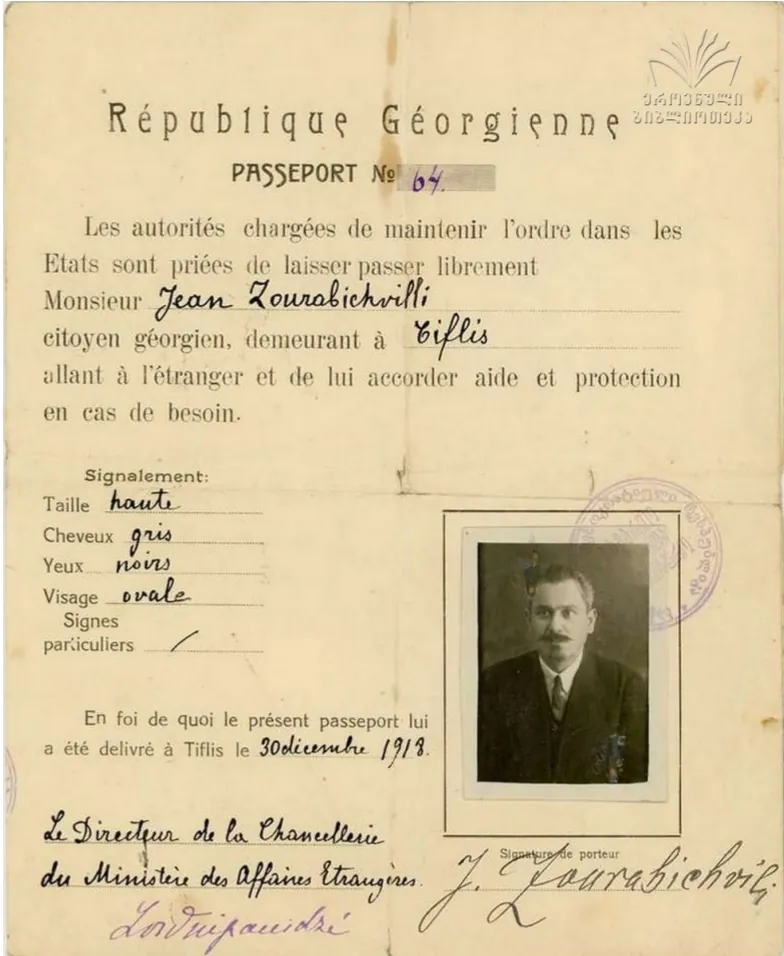 ეროვნული
ბიბლიოთეკა
République Géorgienne
PASSEPORT № 64.
Les autorités chargées de maintenir l'ordre dans les
Etats sont priées de laisser passer librement
Monsieur Jean Zourabichvilli
citoyen géorgien, demeurant à Tiflis
allant à l'étranger et de lui accorder aide et protection
en cas de besoin.
Signalement:
Taille haute
Cheveux gris
Yeux noirs
Visage ovale
Signes
particuliers /
En foi de quoi le présent passeport lui
a été delivré à Tiflis le 30 décembre 1918.
Le Directeur de la Chancellerie
du Ministère des Affaires Etrangères.
Signature de porteur
J. Zourabichvili